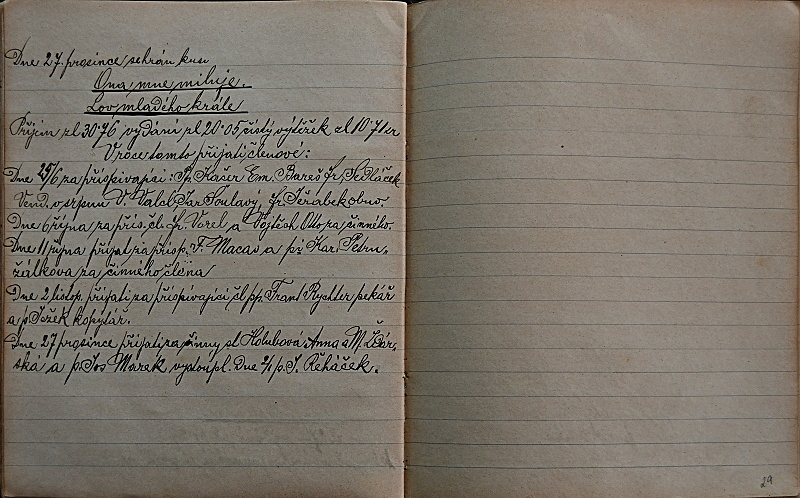 Dne 27. prosince sehrán kus
Ona mne miluje.
Lov mladého krále
Příjem zl 30·76 vydání zl 20·05 čistý výtěžek zl 10·71 kr
V roce tomto přijati členové:
Dne 25/6 za přispívající: Pp. Kačer Em. Bareš Fr. Sedláček
Vend. v srpnu V. Valcl Jar Soulavý, Fr. Jeřábek obuv.
Dne 6 října za přís. čl. Fr. Vorel a Vojtěch Otto za činného.
Dne 11 října přijat za přisp. F. Macas a pí Kar. Petru-
žálkova za činného člena
Dne 2 listop. přijati za přispívající čl pp. Frant Rychter pekář
a p. Ježek kopytář.
Dne 27 prosince přijati za činny sl Holubová Anna a M. Žďár-
ská a p. Jos Marák vystoupl. Dne 2/1 p. J. Řeháček.
29